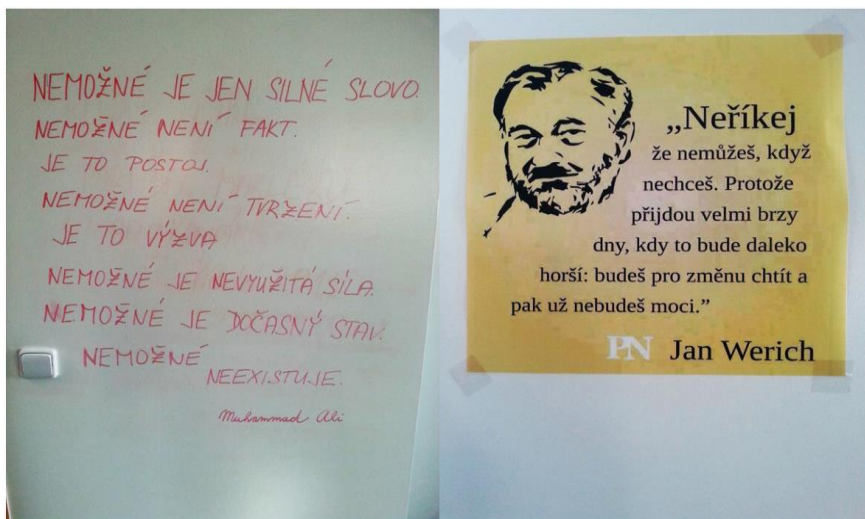 NEMOŽNÉ JE JEN SILNÉ SLOVO.
NEMOŽNÉ NENÍ FAKT.
JE TO POSTOJ.
NEMOŽNÉ NENÍ TVRZENÍ.
JE TO VÝZVA
NEMOŽNÉ JE NEVYUŽITÁ SÍLA.
NEMOŽNÉ JE DOČASNÝ STAV.
NEMOŽNÉ
NEEXISTUJE.
Muhammad Ali
„Neříkej
že nemůžeš, když
nechceš. Protože
přijdou velmi brzy
dny, kdy to bude daleko
horší: budeš pro změnu chtít a
pak už nebudeš moci.”
PN Jan Werich